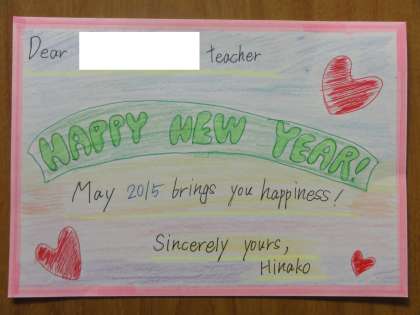 Dear teacher
HAPPY NEW YEAR!
May 2015 brings you happiness!
Sincerely yours,
Hinako